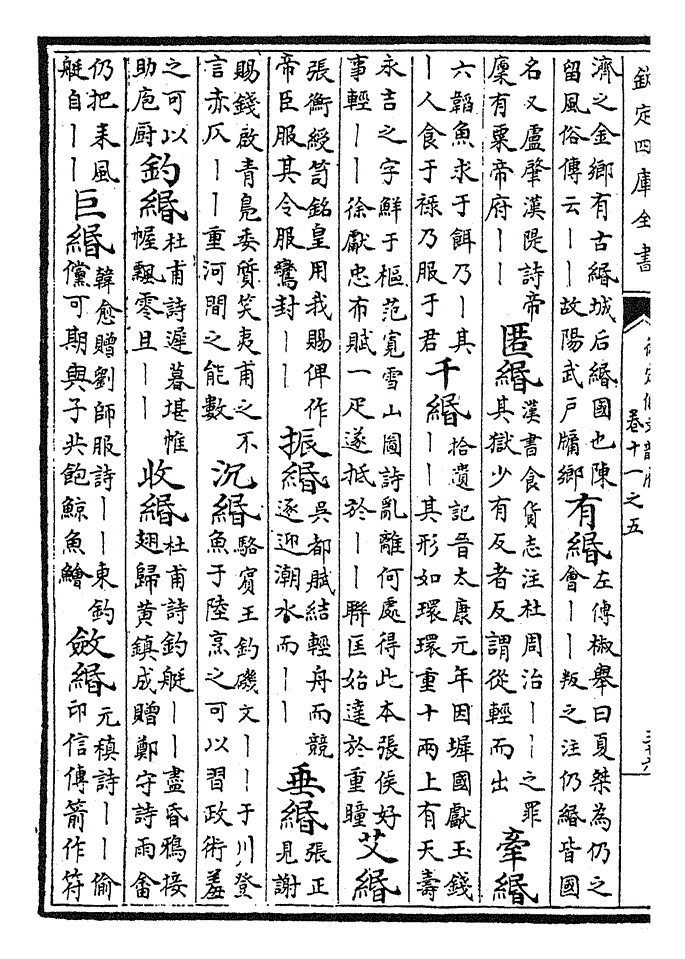 欽定四庫全書
御定佩文韻府
卷十一之五
三十六
濟之金鄉有古緡城后緡國也陳
留風俗傳云｜｜故陽武戸牖鄉
有緡
左傳椒舉曰夏桀為仍之
會｜｜叛之注仍緡皆國
名又盧肇漢隄詩帝
廩有粟帝府｜｜
匿緡
漢書食貨志注杜周治｜｜之罪
其獄少有反者反謂從輕而出
牽緡
六韜魚求于餌乃｜其
｜人食于祿乃服于君
千緡
拾遺記晉太康元年因墀國獻玉錢
｜｜其形如環環重十兩上有天壽
永吉之字鮮于樞范寬雪山圖詩亂離何處得此本張侯好
事輕｜｜徐獻忠布賦一疋遂抵於｜｜聯匡始達於重瞳
艾緡
張衡綬笥銘皇用我賜俾作
帝臣服其令服鸞封｜｜
振緡
吳都賦結輕舟而競
逐迎潮水而｜｜
垂緡
張正
見謝
賜錢啟青鳧委質笑夷甫之不
言赤仄｜｜重河間之能數
沉緡
駱賓王釣磯文｜｜于川登
魚于陸烹之可以習政術羞
之可以
助庖厨
釣緡
杜甫詩遲暮堪帷
幄飄零且｜｜
收緡
杜甫詩釣艇｜｜盡昏鴉接
翅歸黄鎮成贈鄭守詩雨畬
仍把耒風
艇自｜｜
巨緡
韓愈贈劉師服詩｜｜東釣
儻可期與子共飽鯨魚鱠
斂緡
元稹詩｜｜偷
印信傳箭作符